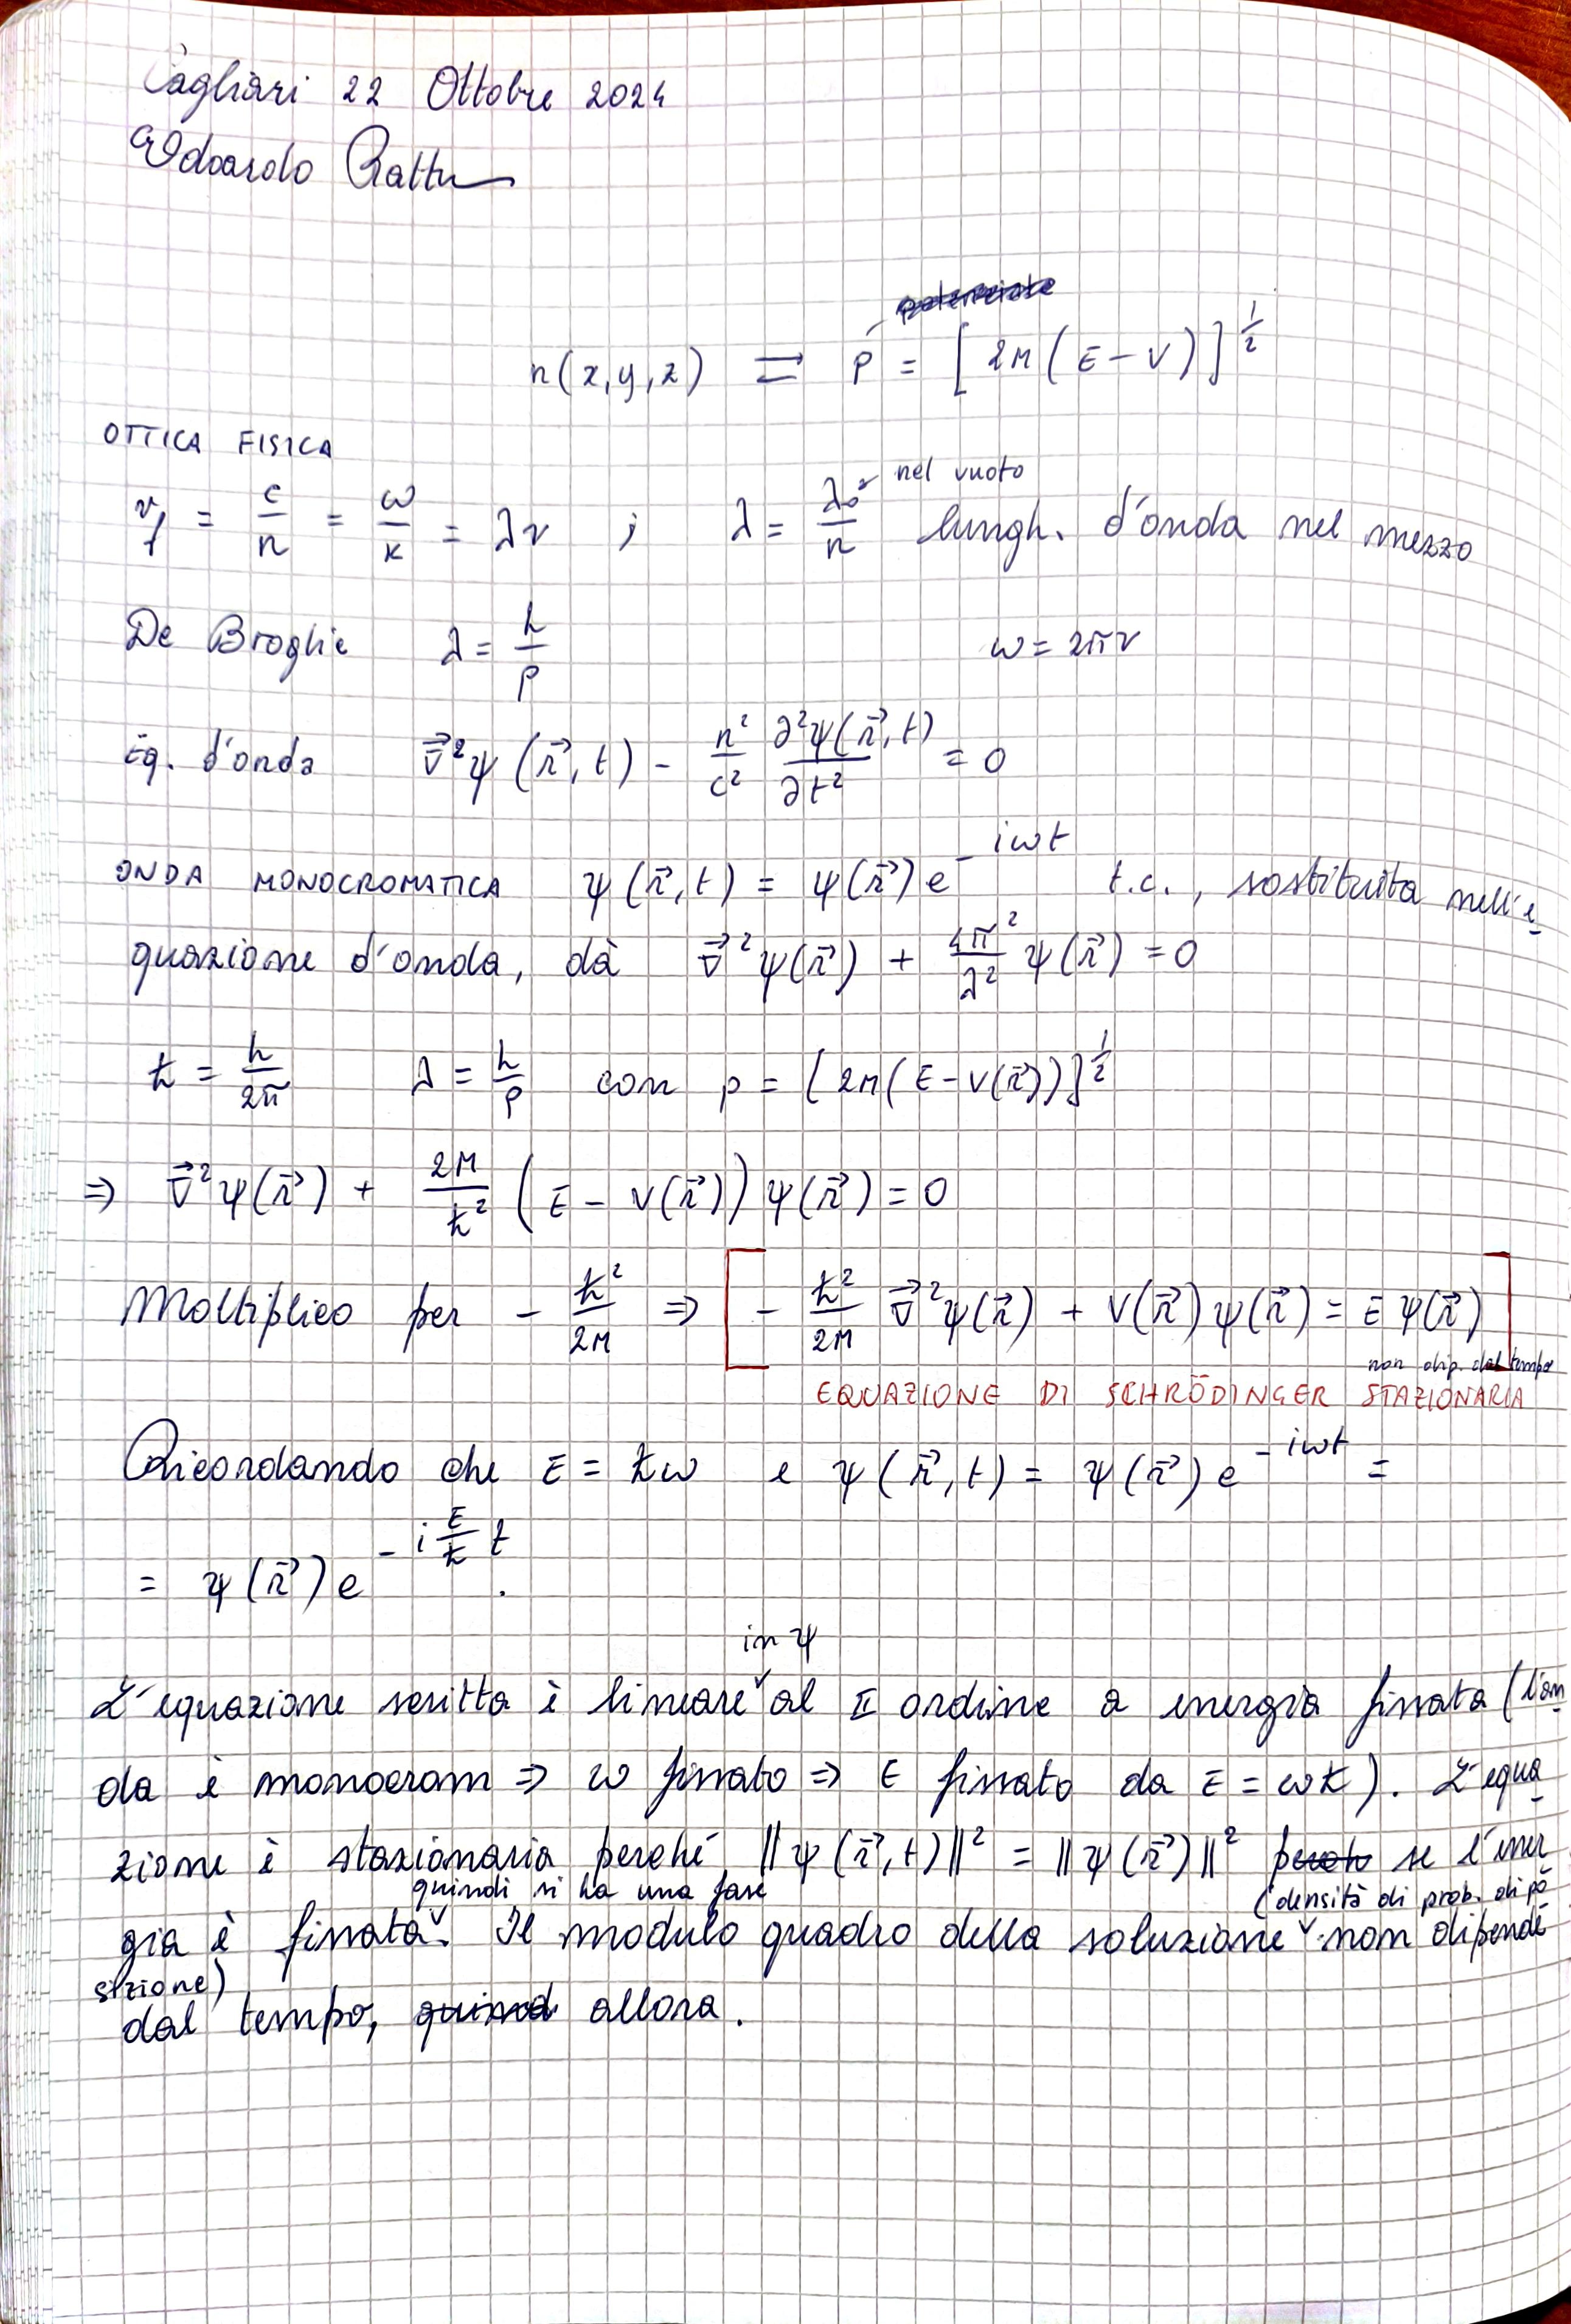 Cagliari 22 Ottobre 2024
Edoardo Rattu
n(x,y,z) ⇄ p = [2M(E-V)]^{1/2}
OTTICA FISICA
v_f = c/n = ω/k = λν ; λ = λ₀/n nel vuoto lungh. d'onda nel mezzo
De Broglie λ = h/p ω = 2πν
Eq. d'onda ∇⃗²ψ(r⃗,t) - n²/c² ∂²ψ(r⃗,t)/∂t² = 0
ONDA MONOCROMATICA ψ(r⃗,t) = ψ(r⃗)e^{-iωt} t.c., sostituita nell'e
quazione d'onda, dà ∇⃗²ψ(r⃗) + 4π²/λ² ψ(r⃗) = 0
ħ = h/2π λ = h/p con p = [2M(E-V(r⃗))]^{1/2}
⇒ ∇⃗²ψ(r⃗) + 2M/ħ² (E - V(r⃗))ψ(r⃗) = 0
Moltiplico per - ħ²/2M ⇒ [- ħ²/2M ∇⃗²ψ(r⃗) + V(r⃗)ψ(r⃗) = E ψ(r⃗)]
non dip. dal tempo
EQUAZIONE DI SCHRÖDINGER STAZIONARIA
Ricordando che E = ħω e ψ(r⃗,t) = ψ(r⃗)e^{-iωt} =
= ψ(r⃗)e^{-i E/ħ t}.
in ψ
L'equazione scritta è lineare al II ordine a energia fissata (l'on
da è monocrom ⇒ ω fissato ⇒ E fissato da E = ωħ). L'equa
zione è stazionaria perché ||ψ(r⃗,t)||² = ||ψ(r⃗)||² se l'ener
quindi si ha una fase (densità di prob. di po
gia è fissata. Il modulo quadro della soluzione non dipende
sizione)
dal tempo, allora.